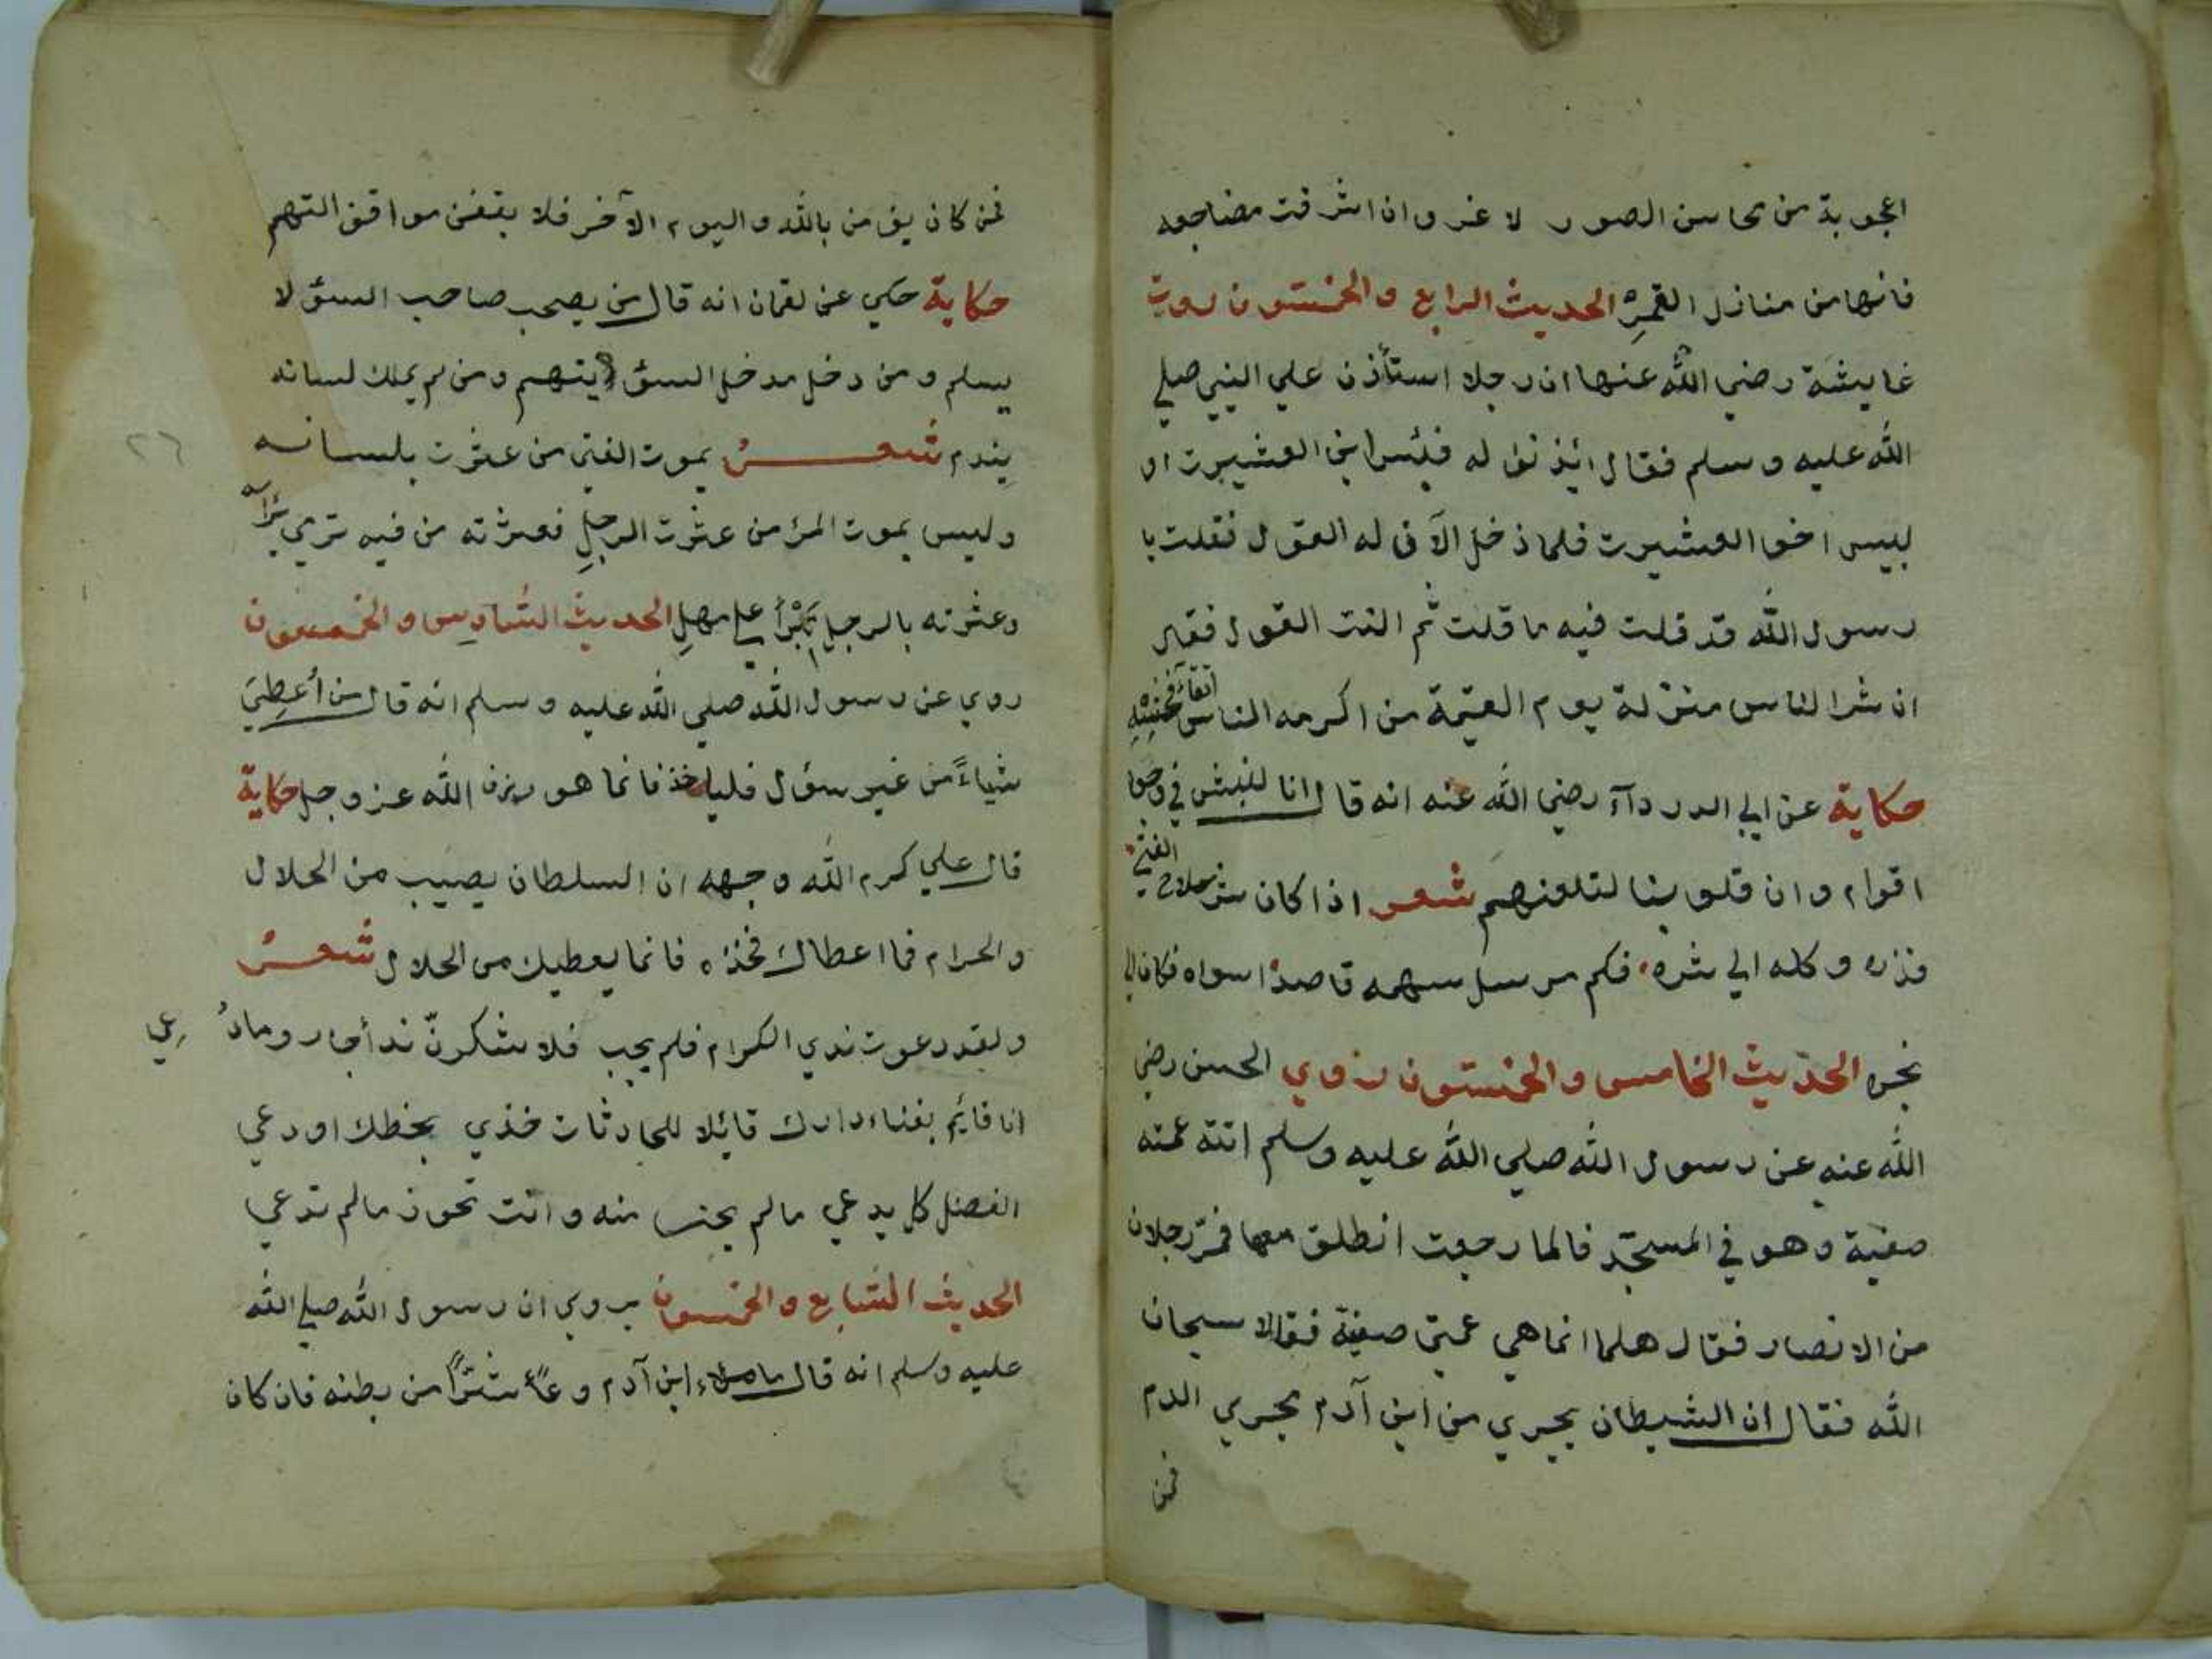 اعجوبة من محاسن الصور لا غرو ان اشرقت مضاجعه
فانها من منازل القمر الحديث الرابع والخمستون روت
عايشة رضي الله عنها ان رجلا استأذن علي النبي صلي
الله عليه وسلم فقال ائذنوا له فبئس ابن العشيرت او
لبيس اخوا العشيرت فلما دخل الآن له القول فقلت يا
رسول الله قد قلت فيه ما قلت ثم النت القول فقال
ان شر الناس منزلة يوم القيمة من اكرمه الناس اتقاء فحشه
حكاية عن ابي الدردآء رضي الله عنه انه قال انا لنبش في وجوه
اقوام وان قلوبنا لتلعنهم شعر اذا كان شر سلاح الفتي
فذره وكله الي شره فكم مرسل سهمه قاصدا سواه فكان الي
نحره الحديث الخامس والخمستون روي الحسن رضي
الله عنه عن رسول الله صلي الله عليه وسلم اتته عمته
صفية وهو في المسجد فالما رجعت انطلق معها فمر رجلان
من الانصار فقال هلما انما هي عمتي صفية فقالا سبحان
الله فقال ان الشيطان يجري من ابن آدم مجري الدم
فمن
فمن كان يؤمن بالله واليوم الآخر فلا يقفن مواقف التهم
حكاية حكي عن لقمان انه قال من يصحب صاحب السؤ لا
يسلم ومن دخل مدخل السؤ يتهم ومن لم يملك لسانه
يندم شعر يموت الفتي من عثرت بلسانه
وليس يموت المرء من عثرت الرجل فعثرته من فيه ترمي برأسه
وعثرته بالرجل تبرأ علي مهل الحديث السادس والخمسون
روي عن رسول الله صلي الله عليه وسلم انه قال من أعطي
شياءً من غير سؤال فلياخذ فانما هو رزق الله عز وجل حكاية
قال علي كرم الله وجهه ان السلطان يصيب من الحلال
والحرام فما اعطاك فخذه فانما يعطيك من الحلال شعر
ولقد دعوت ندي الكرام فلم يجب فلا شكرنّ ندأ اجاب وما دعي
انا قايم بفناء دارك قائلا للحادثات خذي بخطك او دعي
الفضل كل يدعي ما لم يحز منه وانت تحوز ما لم تدعي
الحديث السابع والخمسون يروي ان رسول الله صلي الله
عليه وسلم انه قال ما ملاء ابن آدم وعاً شرًّا من بطنه فان كان
٢٦